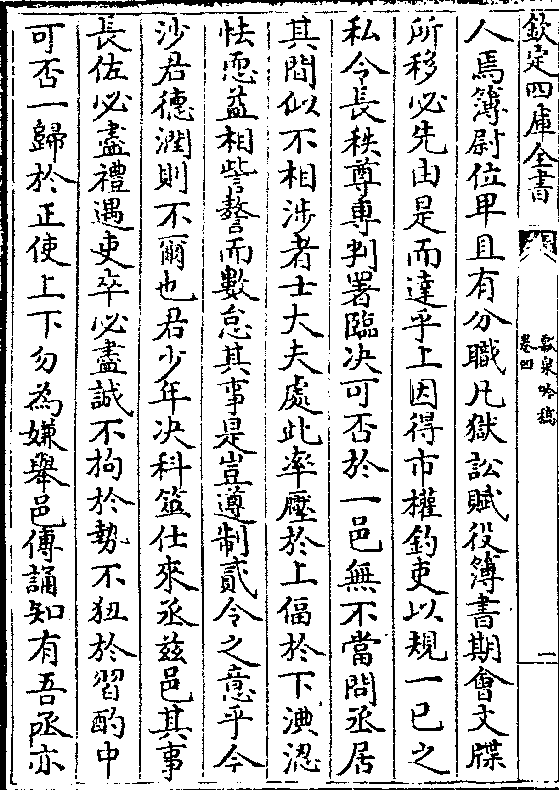 欽定四庫全書
瓢泉吟稿
卷四
一
人焉簿尉位卑且有分職凡獄訟賦役簿書期會文牒
所移必先由是而達乎上因得市權釣吏以規一已之
私令長秩尊専判署臨决可否於一邑無不當問丞居
其間似不相涉者士大夫處此率壓於上偪於下淟涊
怯恧益相訾謷而數怠其事是豈遵制貳令之意乎今
沙君德潤則不爾也君少年决科筮仕來丞兹邑其事
長佐必盡禮遇吏卒必盡誠不拘於勢不狃於習酌中
可否一歸於正使上下勿為嫌舉邑傳誦知有吾丞亦